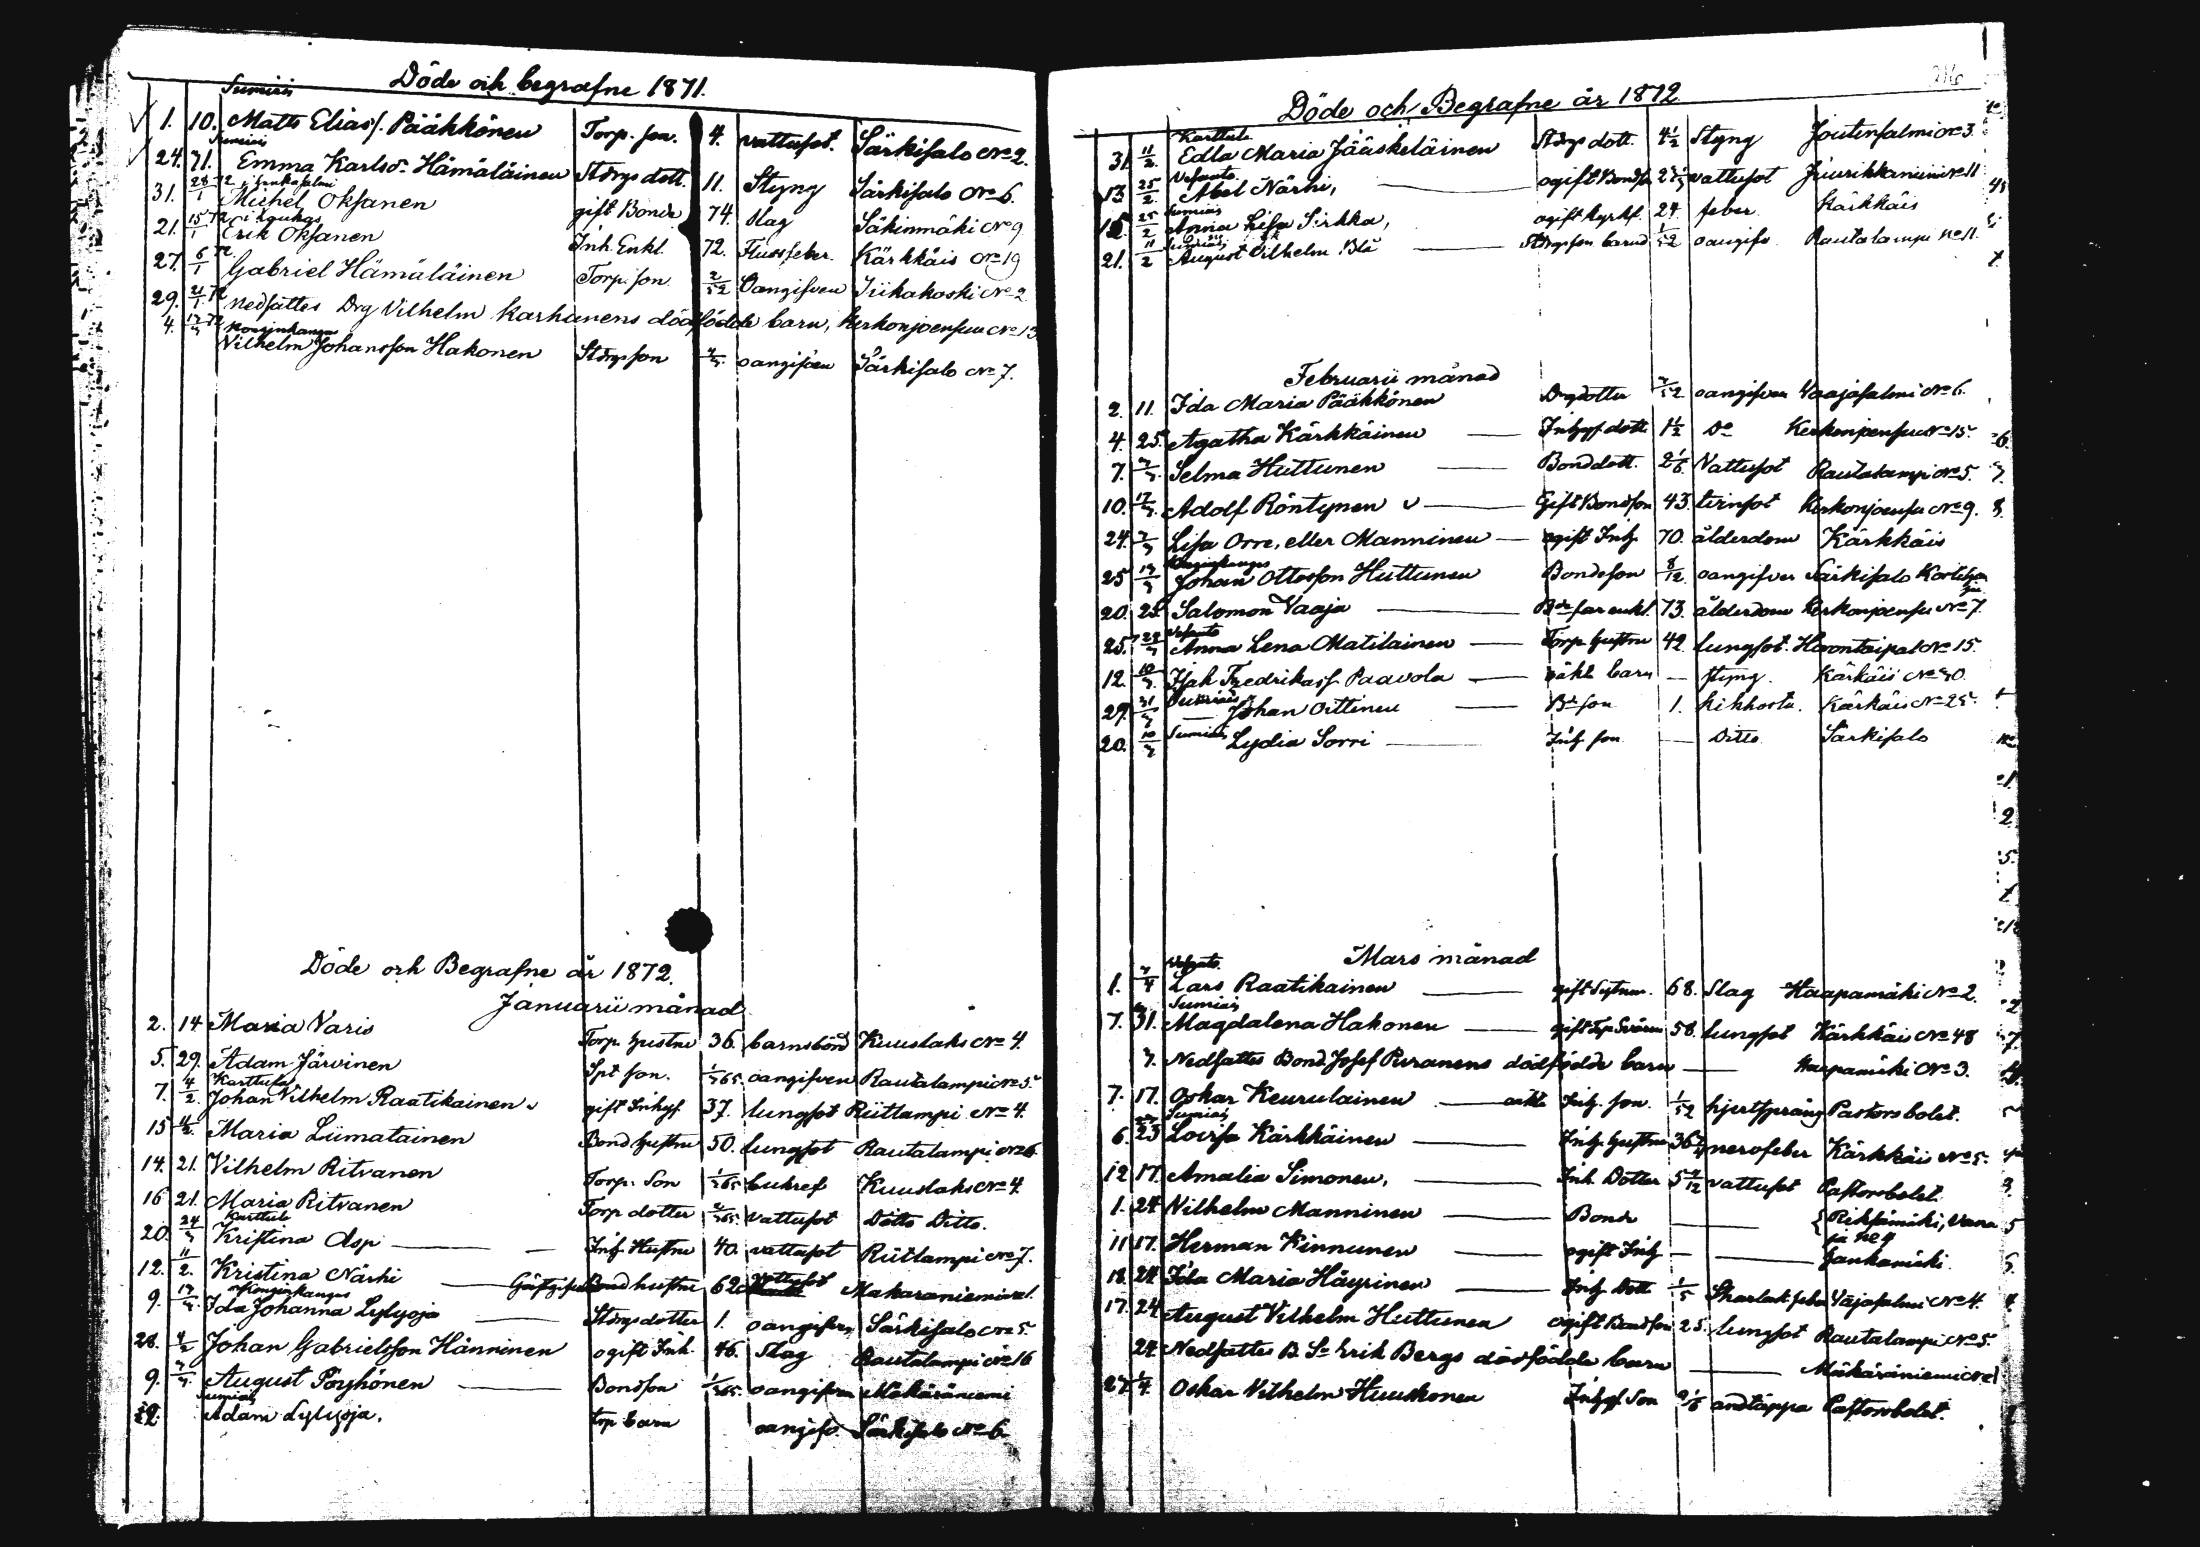 Döde och begrafne 1871.
Sumiais
1. 10. Matts Eliass. Pääkkönen Torp. son. 4. vattusot. Särkisalo No 2.
Sumiais
24. 71. Emma Karlsd. Hämäläinen Storps dott. 11. Styng Särkisalo No 6.
31. 28/1 72 Michel Oksanen gift Bonde 74. slag Säkinmäki No 9
21. 15/1 72 Erik Oksanen Inh. Enkl. 72. Flussfeber. Kärkkäis No 19
27. 6/1 72 Gabriel Hämäläinen Torp. son 2/52 Oangifven Iiikakoski No 2
29. 21/1 72 Nedsattes Drg Vilhelm Karhunens dödfödde barn, Kerkonjoensuu No 13
4. Konginkangas
Vilhelm Johansson Hakonen Storps son oangifven Särkisalo No 7.
Döde och Begrafne år 1872.
Januarii månad
2. 14 Maria Varis Torp. hustru 36. barnsbörd Kuuslaks No 4.
5. 29. Adam Järvinen Spt son. 1/365. oangifven Rautalampi No 5.
Karttula
7. 4/2 Johan Vilhelm Raatikainen gift Inhys. 37. lungsot Riitlampi No 4.
15 Maria Liimatainen Bond hustru 50. lungsot Rautalampi No 26
14. 21. Vilhelm Ritvanen Torp. Son 1/365 bukref Kuuslaks No 4.
16 21. Maria Ritvanen Torp dotter 2/365 vattusot Ditto Ditto.
Karttula
20. 24/3 Kristina Asp Inh Hustru 40. vattusot Riitlampi No 7.
12. 11/2. Kristina Närhi Bond hustru 62 vattusot Makaraniemi No 1.
Konginkangas
9. Ida Johanna Lylyoja Storps dotter 1. oangifven Särkisalo No 5.
28. 4/2 Johan Gabrielsson Hänninen ogift Inh. 46. Slag Rautalampi No 16
9. Augusti Pöyhönen Bondson 1/365. oangifven Mäkäräniemi
Sumiais
12. Adam Lylyoja. torp barn oangifv. Särkisalo No 6.
Döde och Begrafne år 1872
Karttula
31. 11/2. Edla Maria Jääskeläinen Storps dott. 4 1/2 Styng Joutensalmi No 3.
Vesanto.
13 25/2. Abel Närhi, ogift Bondson vattusot Jiuurikkaniemi No 11
Sumiais
25/2 Anna Lisa Sirkka, ogift kyrkf. 24. feber. Kärkkäis
Sumiais
21. 11/2 August Vilhelm Blå 1/52 oangifv. Rautalampi No 11.
Februarii månad
2. 11. Ida Maria Pääkkönen Drgdotter oangifven Vaajasalmi No 6.
4. 25. Agatha Kärkkäinen Inhys dott. 1 1/2 Do Kerkonjoensuu No 15.
7. Selma Huttunen Bonddott. 2 1/6. Vattusot Rautalampi No 5.
10. 17/3. Adolf Röntynen Gift Bondson 43. tvinsot Kerkonjoensu No 9.
24. Lisa Orre, eller Manninen ogift Inh. 70. ålderdom Kärkkäis
Konginkangas
25 Johan Ottosson Huttunen Bondeson 8/12. oangifven Särkisalo
20. 25 Salomon Vaaja enkl. 73. ålderdom Kerkonjoensu No 7.
Vesanto
25. Anna Lena Matilainen Torp hustru 42 lungsot. Horontaipal No 15.
12. 10/3. Isak Fredrikass. Paavola oäkt barn — styng. Kärkäis No 30.
Sumiais
29. 31/3 Johan Oittinen Bd son 1. kikhosta. Kärkäis No 25.
Sumiais
20. 10/3 Lydia Sorri Inh son — Ditto Särkisalo
Mars månad
Vesanto.
1. 7/4 Lars Raatikainen gift Sytnm. 68. Slag Haapamäki No 2.
Sumiais
7. 31. Magdalena Hakonen 58. lungsot Kärkkäis No 48
7. Nedsattes Bond Josef Puranens dödfödde barn Haapamäki No 3.
7. 17. Oskar Keurulainen oäkta Inh. son. 1/52 hjertspräng Pastorsbolet.
Sumiais
6. 23 Lovisa Kärkkäinen Inh. hustru nervfeber Kärkkäis No 5.
12 17. Amalia Simonen, Inh. Dotter vattusot Pastorsbolet.
1. 24 Vilhelm Manninen Bonde
11 17. Herman Kinnunen ogift Inh Jankamäki
18. 24. Ida Maria Häyrinen Inh Dott 1/5 Skarlak. feber Vajasalmi No 4.
17. 24 August Vilhelm Huttunen ogift Bondson 25. lungsot Rautalampi No 5.
24. Nedsattes B. Sn Erik Bergs dödfödde barn Mäkäräniemi No 1
27. 1/4. Oskar Vilhelm Huuskonen Inhys Son 2 1/6 andtäppa Pastorsbolet.